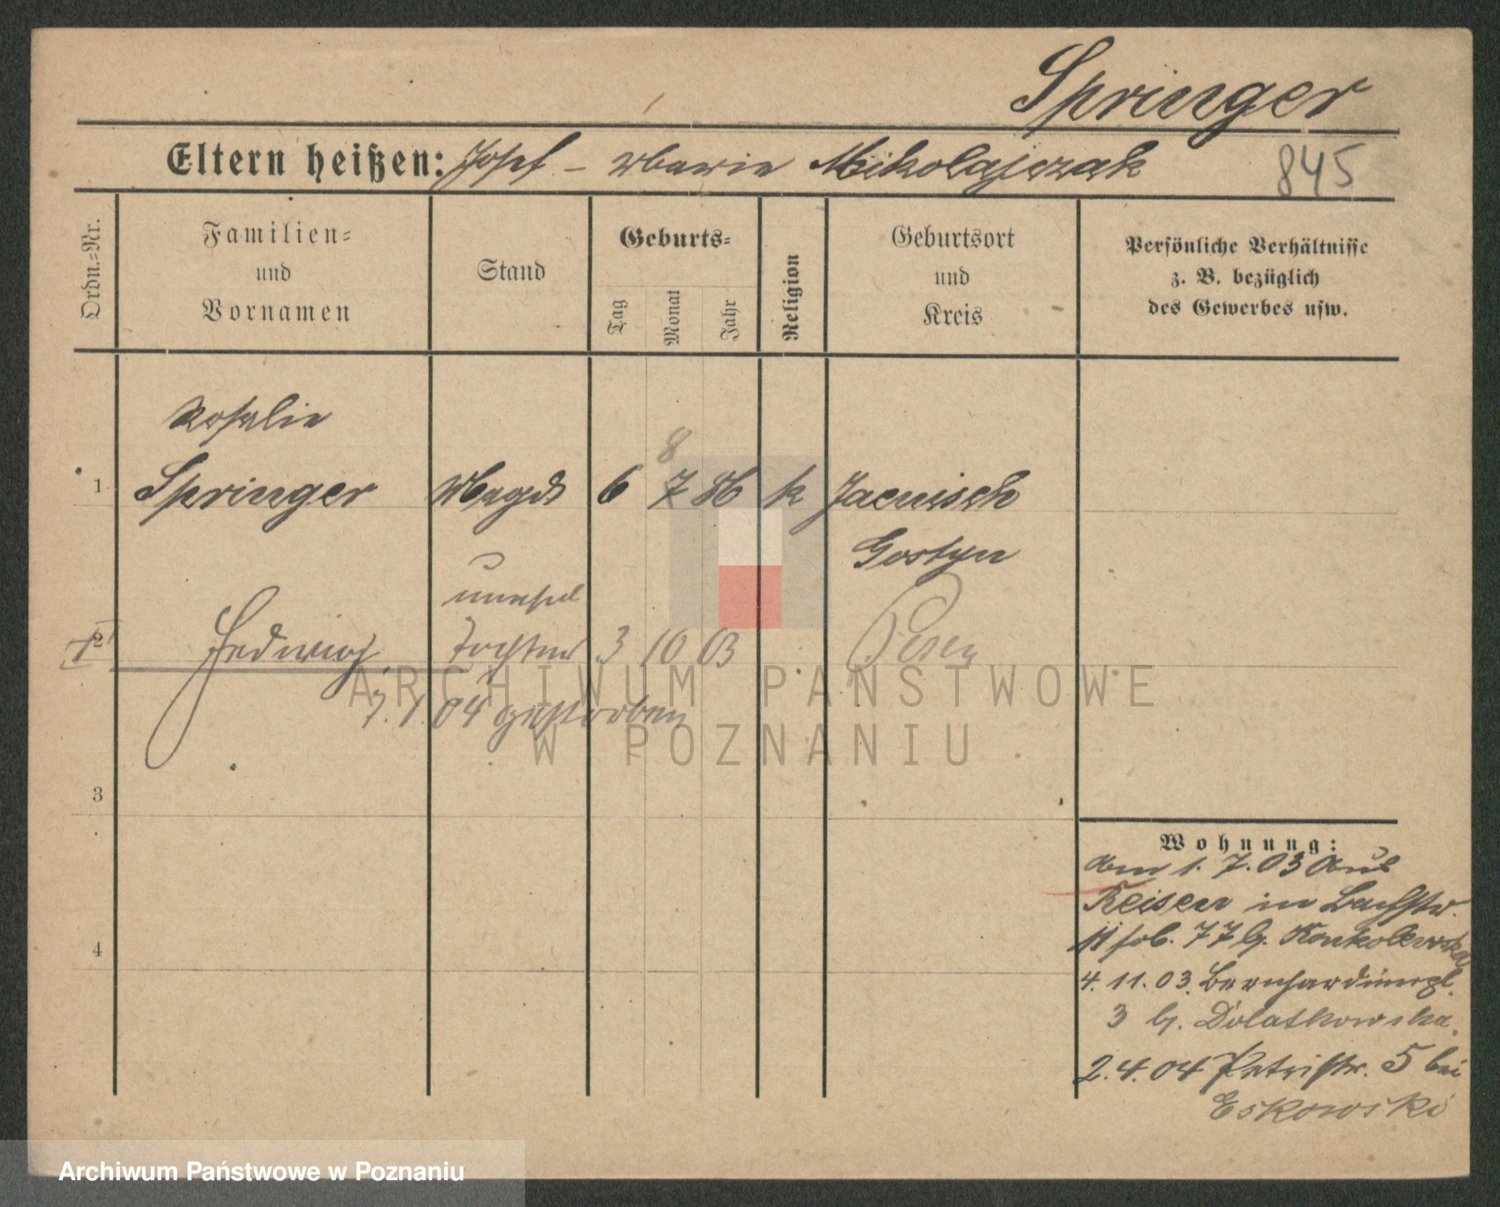 Springer
Eltern heißen: Josef - Marie Mikolajczak
845
Ordn.=Nr.
Familien=
und
Vornamen
Stand
Geburts=
Tag
Monat
Jahr
Religion
Geburtsort
und
Kreis
Persönliche Verhältnisse
z. B. bezüglich
des Gewerbes usw.
Rosalie
8
1 Springer Magd 6 7 86 k Jaenisch
Gostyn
unehel
2 Hedwig Tochter 3 10 03 Posen
7.1.04 gestorben
3
4
Wohnung:
am 1. 7. 03 aus
Reisen in Bachstr.
77 b. Konkolewska
4. 11. 03. Bernhardinerpl.
3 b. Dolatkowska.
2. 4. 04 Petristr. 5 bei
Eskowski
ARCHIWUM PAŃSTWOWE
W POZNANIU
Archiwum Państwowe w Poznaniu